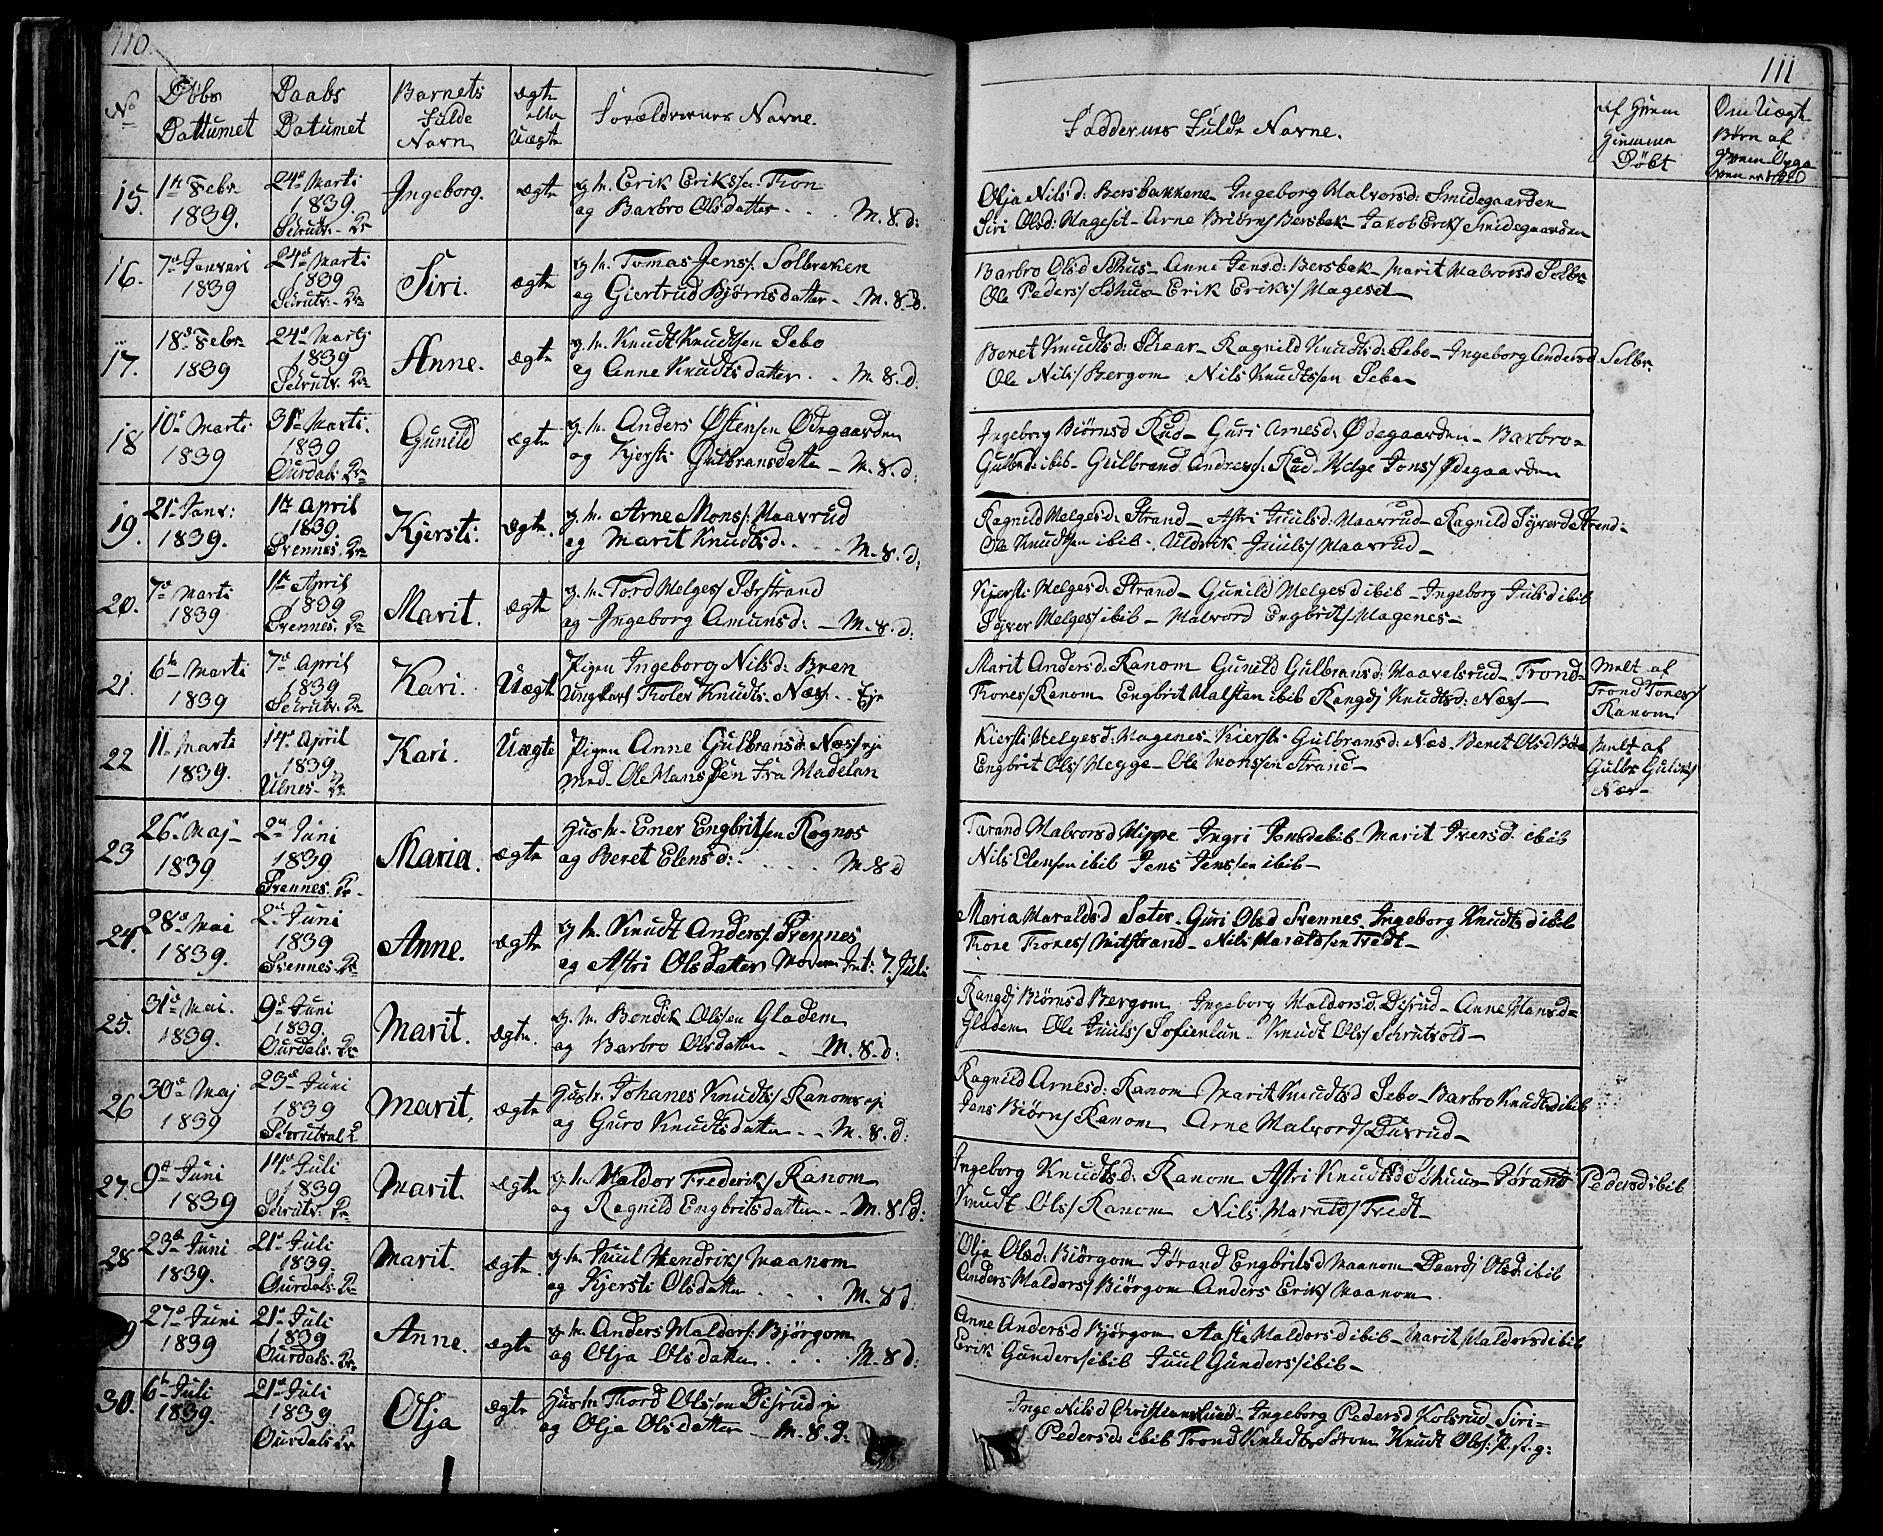 110.
No
Døbs
Dattumet
Daabs
Datumet
Barnets
Fulde
Navn
ægte
eller
Uægte
Forældrernes Navne.
15.
1te Febr
1839.
24de Marti
1839
Ingeborg.
ægte
g. h. Erik Eriks/en Fron
og Barbro Olsdatter . . . M. 8 d:
16.
7de Januari
1839
24de Marti
1839
Siri.
ægte
g. h. Tomas Jens/: Solbreken
og Giertrud Bjørnsdatter - M. 8 d.
17.
18de Febr
1839
24de Marti
1839
Anne.
ægte
g. h. Knudt Knudtsen Sebo
og Anne Knudtsdatter . . M. 8. d.
18
10de Marti
1839
31de Marti.
1839
Ourdals.
Gunild
ægte
g. h. Anders Østensen Ødegaarden
og Kjersti Gulbransdatte - M. 8. d.
19.
21de Janr:
1839.
1te April
1839.
Svennes.
Kjersti.
ægte.
g. h. Arne Mons/: Haavrud
og Marit Knudtsd. . . M. 8. d.
20.
7de Marti
1839
1te April
1839
Svennes.
Marit.
ægte
g. h. Tord Helges/ Strand
og Ingeborg Amunsd: - M. 8. d:
21.
6te Marti
1839
7de April
1839
Kari.
Uægt
Pigen Ingeborg Nilsd: Bren
Ungkarl Tolev Knudts. Næs/ . . Eje
22
11te Marti
1839.
14de April
1839.
Ulnes.
Kari.
Uægte
Pigen Anne Gulbransd. Næs/eje
med Ole Hanssen Fra Hadelan
23
26de Maj
1839
2den Juni
1839.
Svennes.
Maria.
ægte
Husm. Ener Engbritsen Rognos
og Beret Elensd: . . . M. 8 d
24.
28de Mai
1839.
2den Juni
1839
Svennes.
Anne.
ægte
g. h. Knudt Anders/. Svennes
og Astri Olsdatter Moderen Int: 7. Juli
25.
31de Mai.
1839.
9de Juni
1839.
Ourdals.
Marit.
ægte.
g. h. Bendik Olssen Gladem
og Barbro Olsdatter - M. 8. d:
26
30de Maj
1839
23de Juni
1839
Marit.
ægte
Husm. Johanes Knudts/ Ranoms eje
og Guro Knudtsdatter - - M. 8. d:
27.
9de Juni
1839
14de Juli
1839
Marit.
ægte
g. h. Haldor Frederiks/ Ranom
og Ragnild Engbritsdatter - - M. 8 d:
28
23de Juni
1839.
21de Juli
1839.
Ourdals.
Marit.
ægte.
g. h. Juul Hendriks/ Maanom
og Kjersti Olsdatter . . . M. 8 d
27de Juni
1839
21de Juli
1839
Ourdals.
Anne.
ægte
g. h. Anders Haldors/: Bjørgom
og Olja Olsdatter . . . M. 8 d:
30.
6te Juli
1839.
21de Juli
1839.
Ourdals
Olja
ægte
Husm. Thord Olssen Disrud eje
og Olja Olsdatter - M. 8. d.
111
Faddernes Fulde Navne.
af Hvem
Hjemme
Døbt
Om Uægt
Børn af
Olja Nilsd: Bersbakkene - Ingeborg Halvorsd: Smidegaarden
Siri Olsd: Hagesit - Arne Briørns/ Bersbak - Jakob Eriks/ Smidegaarden
Barbro Olsd Søhus - Anne Jensd: Bersbak - Marit Halvorsd Solbr-
Ole Peders/ Søhus - Erik Eriks/ Hageset -
Beret Knudtsd: Skear - Ragnild Knudtsd: Sebo - Ingeborg Andersd. Solbr
Ole Nils/ Bergom Nils Knudtssen Sebo -
Ingeborg Biørnsd Rud - Guri Arnesd: Ødegaarden - Barbro -
Gulbrd: ibib - Gulbrand Andres/. Rud Helge Jons/ Ødegaarden
Ragnild Helgesd: Strand - Astri Juulsd. Haavrud - Ragnild Syverd Strand -
Ole Knudtsen ibib - Uldrik Juuls/ Haavrud -
Kjersti Helgesd: Strand - Gunild Helgesd ibib - Ingeborg Julsd ibib
Syver Helges/ ibib - Halvord Engbrits/ Hagenes -
Marit Andersd: Ranom Gunild Gulbransd: Haavelsrud - Trond -
Tores/ Ranom Engbrit Halsten ibib Rangdj Knudtsd: Næs -
Melt af
Trond Tores/
Ranom
Kiersti Helgesd: Hagenes - Kiersti Gulbransd: Næs - Beret Olsd Bøe
Engbrit Ols/ Hegge - Ole Monssen Strand -
Melt af
Næs -
Tørand Halvorsd Hippe Ingri Jonsd ibib Marit Iversd. ibib
Nils Elensen ibib Jens Jenssen ibib -
Maria Haraldsd Sater - Guri Olsd Svennes Ingeborg Knudtsd ibib
Tore Tores/ Mitstrand - Nils Haraldsen Tredt -
Rangdj Biørnsd Bergom, Ingeborg Haldorsd. Disrud - Anne Hansd -
Gladem Ole Juuls/ Sofienlun - Knudt Ols/ Schrutvold -
Ragnild Arnesd: Ranom Marit Knudtsd Sebo - Barbro Knudtsd ibib
Jens Biørns/ Ranom Arne Halvords/ Duvrud -
Ingeborg Knudtsd: Ranom Astri Knudtsd Søhuus - Tørand Pedersd ibib
Knudt Ols/ Ranom Nils Harald/ Tredt -
Olja Olsd: Biørgom Tørand Engbritsd Maanom Baardj Olsd: ibib
Anders Haldors/ Biørgom Anders Eriks/ Maanom
Anne Andersd Bjørgom Aaste Haldorsd ibib - Marit Haldorsd ibib
Erik Gunders/ ibib Juul Gunders/ ibib -
Inge Nilsd Christianslund - Ingeborg Pedersd Kolsrud - Siri -
Pedersd: ibib Trond Knudts/ Strøm Knudt Ols/: